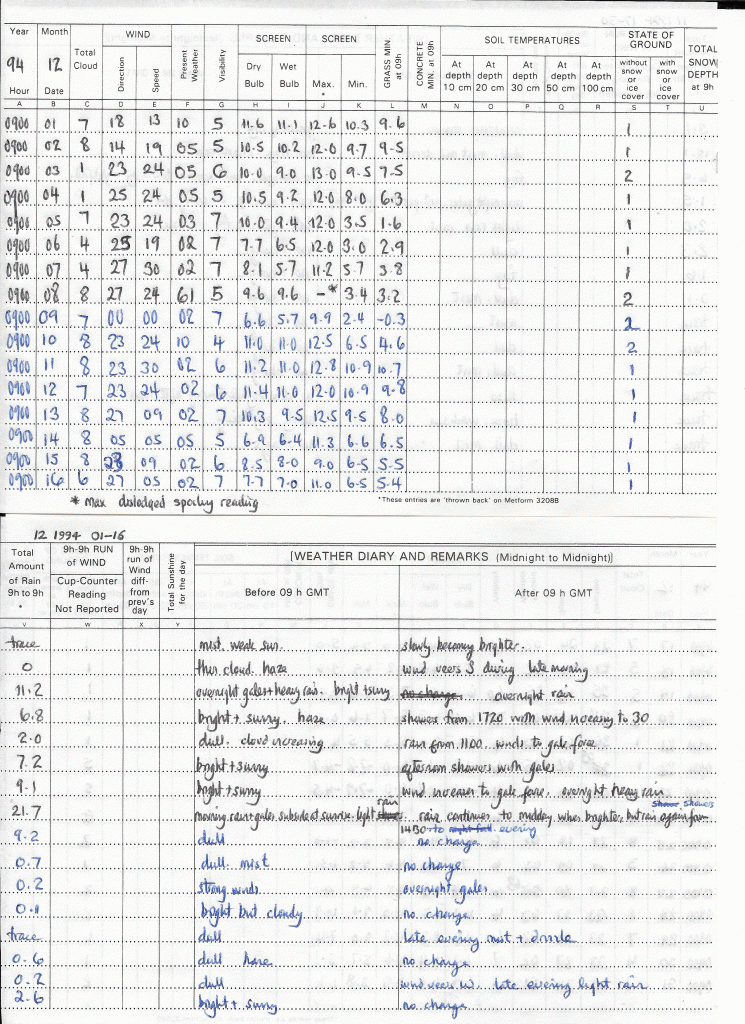 Year Month Total Cloud WIND Present Weather Visibility SCREEN SCREEN GRASS MIN. at 09h CONCRETE MIN. at 09h SOIL TEMPERATURES STATE OF GROUND TOTAL SNOW DEPTH at 9h
94 12 Direction Speed Dry Bulb Wet Bulb Max. * Min. At depth 10 cm At depth 20 cm At depth 30 cm At depth 50 cm At depth 100 cm without snow or ice cover with snow or ice cover
Hour Date
A B C D E F G H I J K L M N O P Q R S T U
0900 01 7 18 13 10 5 11.6 11.1 12.6 10.3 9.6 1
0900 02 8 14 19 05 5 10.5 10.2 12.0 9.7 9.5 1
0900 03 1 23 24 05 6 10.0 9.0 13.0 9.5 7.5 2
0900 04 1 25 24 05 5 10.5 9.2 12.0 8.0 6.3 1
0900 05 7 23 24 03 7 10.0 9.4 12.0 3.5 1.6 1
0900 06 4 25 19 02 7 7.7 6.5 12.0 3.0 2.9 1
0900 07 4 27 30 02 7 8.1 5.7 11.2 5.7 3.8 1
0900 08 8 27 24 61 5 9.6 9.6 -* 3.4 3.2 2
0900 09 7 00 00 02 7 6.6 5.7 9.9 2.4 -0.3 2
0900 10 8 23 24 10 4 11.0 11.0 12.5 6.5 4.6 2
0900 11 8 23 30 02 6 11.2 11.0 12.8 10.9 10.7 1
0900 12 7 23 24 02 6 11.4 11.0 12.0 10.9 9.8 1
0900 13 8 27 09 02 7 10.3 9.5 12.5 9.5 8.0 1
0900 14 8 05 05 05 5 6.9 6.4 11.3 6.6 6.5 1
0900 15 8 23 09 02 6 8.5 8.0 9.0 6.5 5.5 1
0900 16 6 27 05 02 7 7.7 7.0 11.0 6.5 5.4 1
* max dislodged spoiling reading *These entries are 'thrown back' on Metform 3208B
12 1994 01-16
Total Amount of Rain 9h to 9h * 9h-9h RUN of WIND Cup-Counter Reading Not Reported 9h-9h run of Wind diff- from prev's day Total Sunshine for the day [WEATHER DIARY AND REMARKS (Midnight to Midnight)]
Before 09 h GMT After 09 h GMT
V W X Y
trace mist. weak sun. slowly becoming brighter.
0 thin cloud. haze wind veers S during late morning
11.2 overnight gales + heavy rain. bright + sunny no change. overnight rain
6.8 bright + sunny. haze showers from 1720 with wind increasing to 30
2.0 dull. cloud increasing rain from 1100. winds to gale force
7.2 bright + sunny afternoon showers with gales
9.1 bright + sunny wind increases to gale force. overnight heavy rain
21.7 morning rain + gales subside at sunrise. light rain rain continues to midday when brighter, but rain again from
1430 to night fall evening showers
9.2 dull no change
0.7 dull. mist no change
0.2 strong winds overnight gales
0.1 bright but cloudy no change
trace dull late evening mist + drizzle
0.6 dull haze no change
0.2 dull wind veers W. late evening light rain
2.6 bright + sunny no change